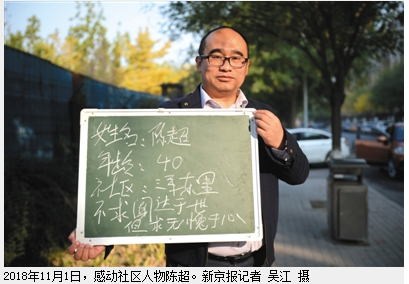 姓名：陈超
年龄：40
社区：三羊东里
不求闻达于世
但求无愧于心
2018年11月1日，感动社区人物陈超。新京报记者 吴江 摄